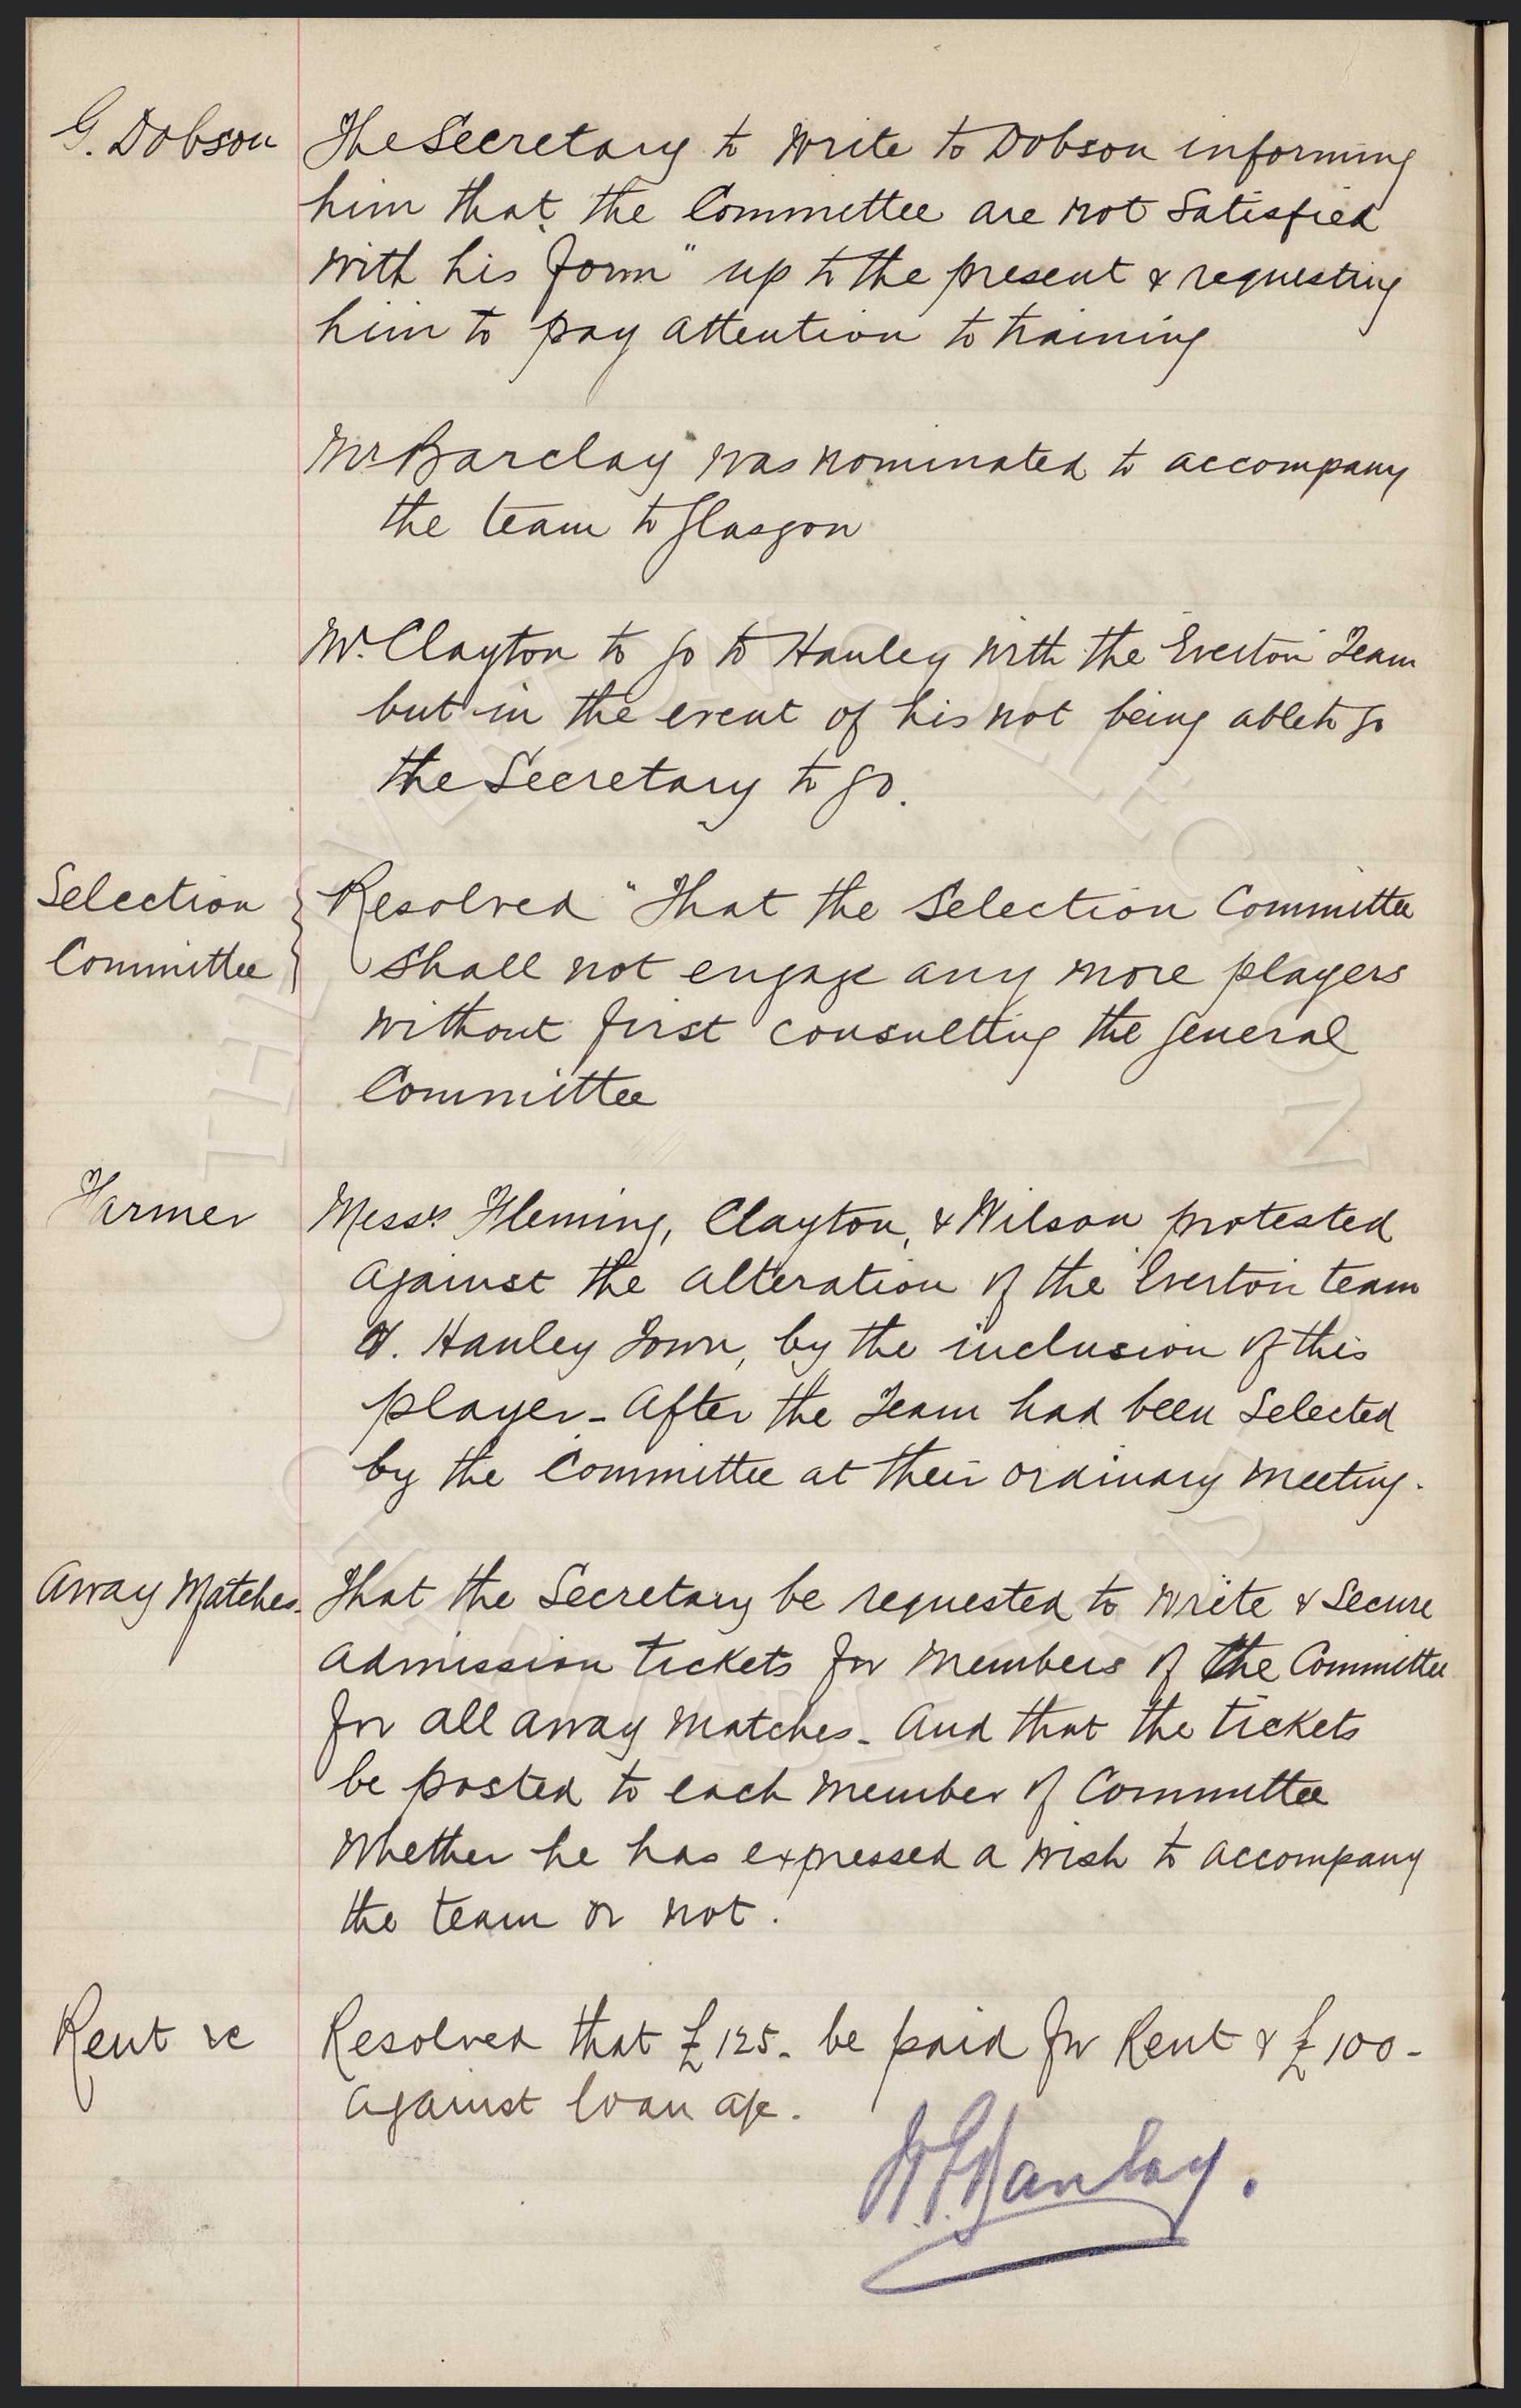 G. Dobson
The Secretary to write to Dobson informing
him that the Committee are not satisfied
with his "form" up to the present & requesting
him to pay attention to training
Mr Barclay was nominated to accompany
the team to Glasgow
Mr. Clayton to go to Hanley with the Everton Team
but in the event of his not being able to go
the Secretary to go.
Selection
Committee
Resolved "That the Selection Committee
shall not engage any more players
without first consulting the General
Committee
Farmer
Messrs Fleming, Clayton, & Wilson protested
against the alteration of the Everton team
v. Hanley Town, by the inclusion of this
player - after the Team had been selected
by the Committee at their ordinary meeting.
Away Matches.
That the Secretary be requested to write & secure
admission tickets for members of the Committee
for all away matches - And that the tickets
be posted to each member of Committee
whether he has expressed a wish to accompany
the team or not.
Rent &c
Resolved that £125 - be paid for Rent & £100 -
against loan a/c.